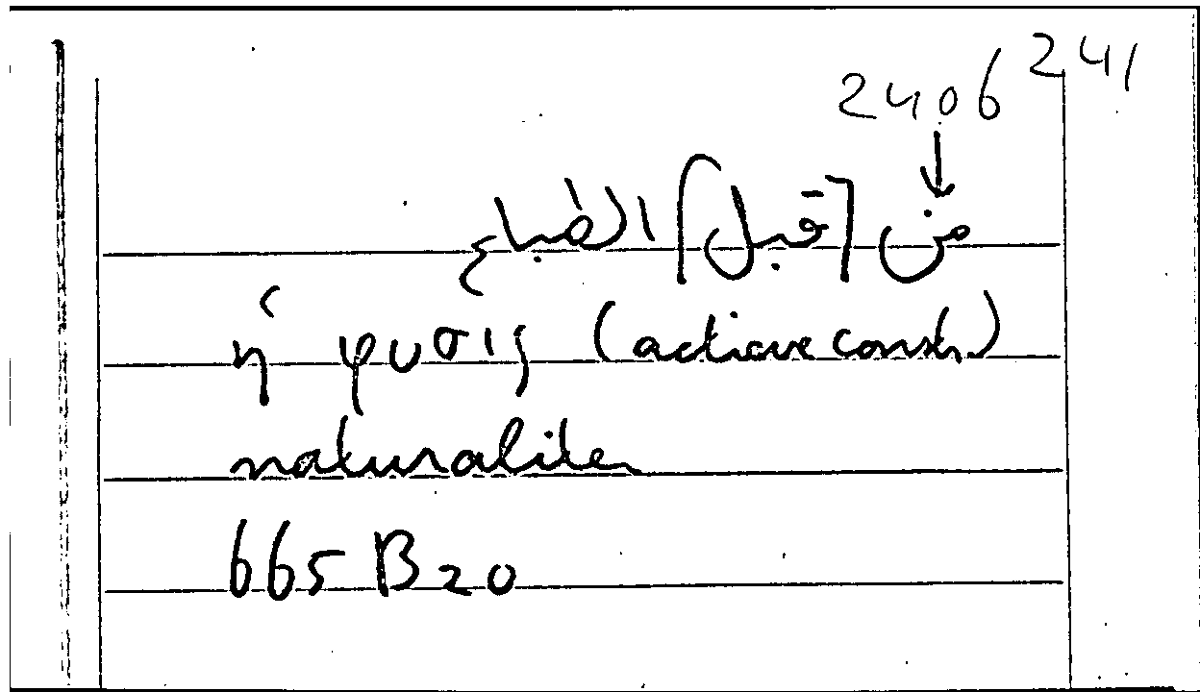 241
2406
من [قبل] الطباع
ἡ φυσις (active constr)
naturaliter
665 B 20